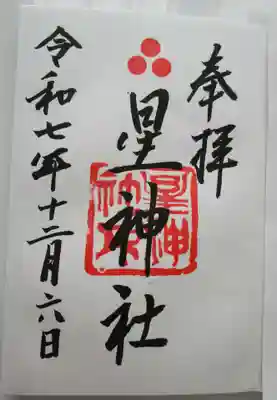 奉拝
星神社
星神社
令和七年十二月六日